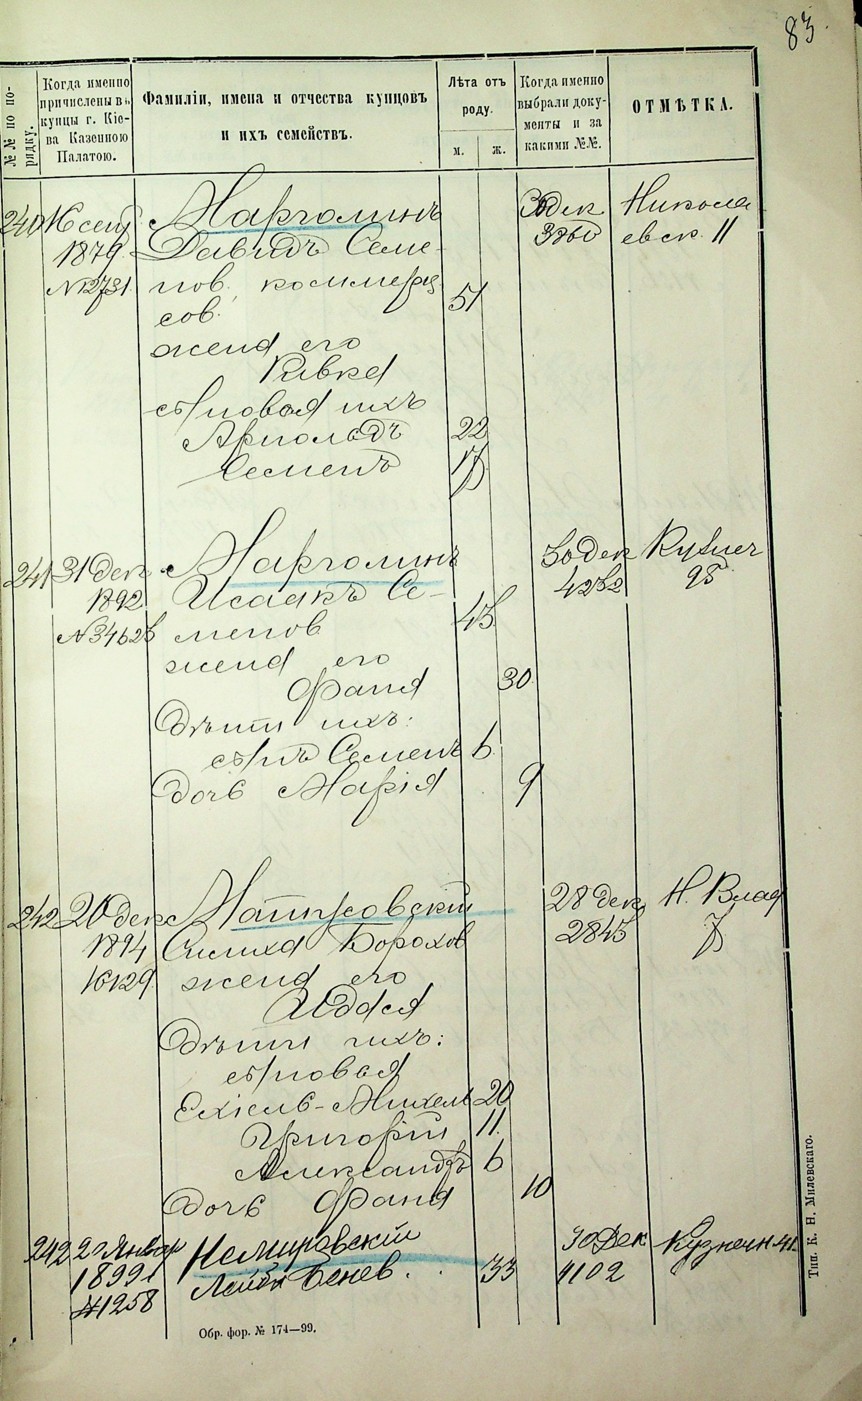 83.
№№ по по-
рядку.
Когда именно
причислены въ
купцы г. Кіе-
ва Казенною
Палатою.
Фамиліи, имена и отчества купцовъ
и ихъ семействъ.
Лѣта отъ
роду.
м.
ж.
Когда именно
выбрали доку-
менты и за
какими №№.
ОТМѢТКА.
240 16 сент Марголинъ 30 дек Никола
1879 Давидъ Семе- евск. 11
№12731 нов. коммерц
сов. 51
жена его
Ривка
сыновья ихъ
Арнольдъ 22
Семенъ 17
241 31 дек Марголинъ 30 дек Кузнеч
1892 Исаакъ Се- 4252 95
№ 34625 менов 45
жена его
Фаня 30
дѣти ихъ:
сынъ Семенъ 6
дочь Марія 9
242 20 дек 28 дек Н. Влад
1894 Борохов 2845 7
16129 жена его
дѣти ихъ:
сыновья
Ехіель-Михель 20
Григорій 11
Александръ 6
дочь Фаня 10
242 20 Январ Немировскій 30 Дек Кузнечн 41
1899 Лейба Бенев. 33 4102
№1258
Обр. фор. № 174—99.
Тип. К. Н. Милевскаго.